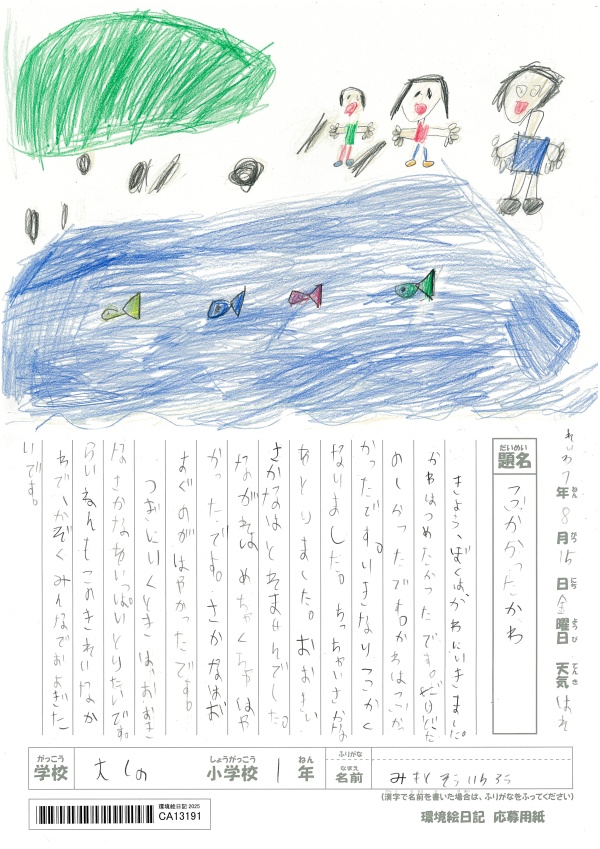 れいわ7年8月15日金曜日 天気はれ
ねん がつ にち ようび てんき
だいめい
題名
ふかかったかわ
きょう、ぼくは、かわにいきました。
かわはつめたかったです。
のしかったです。かわはふか
かったです。いきなりふかく
なりました。ちっちゃいさかな
をとりました。おおきい
さかなはとれませんでした。
ながれは、めちゃくちゃはや
かったです。さかなはおよ
ぐのがはやかったです。
つぎにいくときは、おおき
なさかなをいっぱいとりたいです。
らいねんもこのきれいなか
わで、かぞくみんなでおよぎた
いです。
がっこう
学校
大しの
しょうがっこう
小学校
1
ねん
年
ふりがな
なまえ
名前
(漢字で名前を書いた場合は、ふりがなをふってください)
環境絵日記 2025
CA13191
環境絵日記 応募用紙